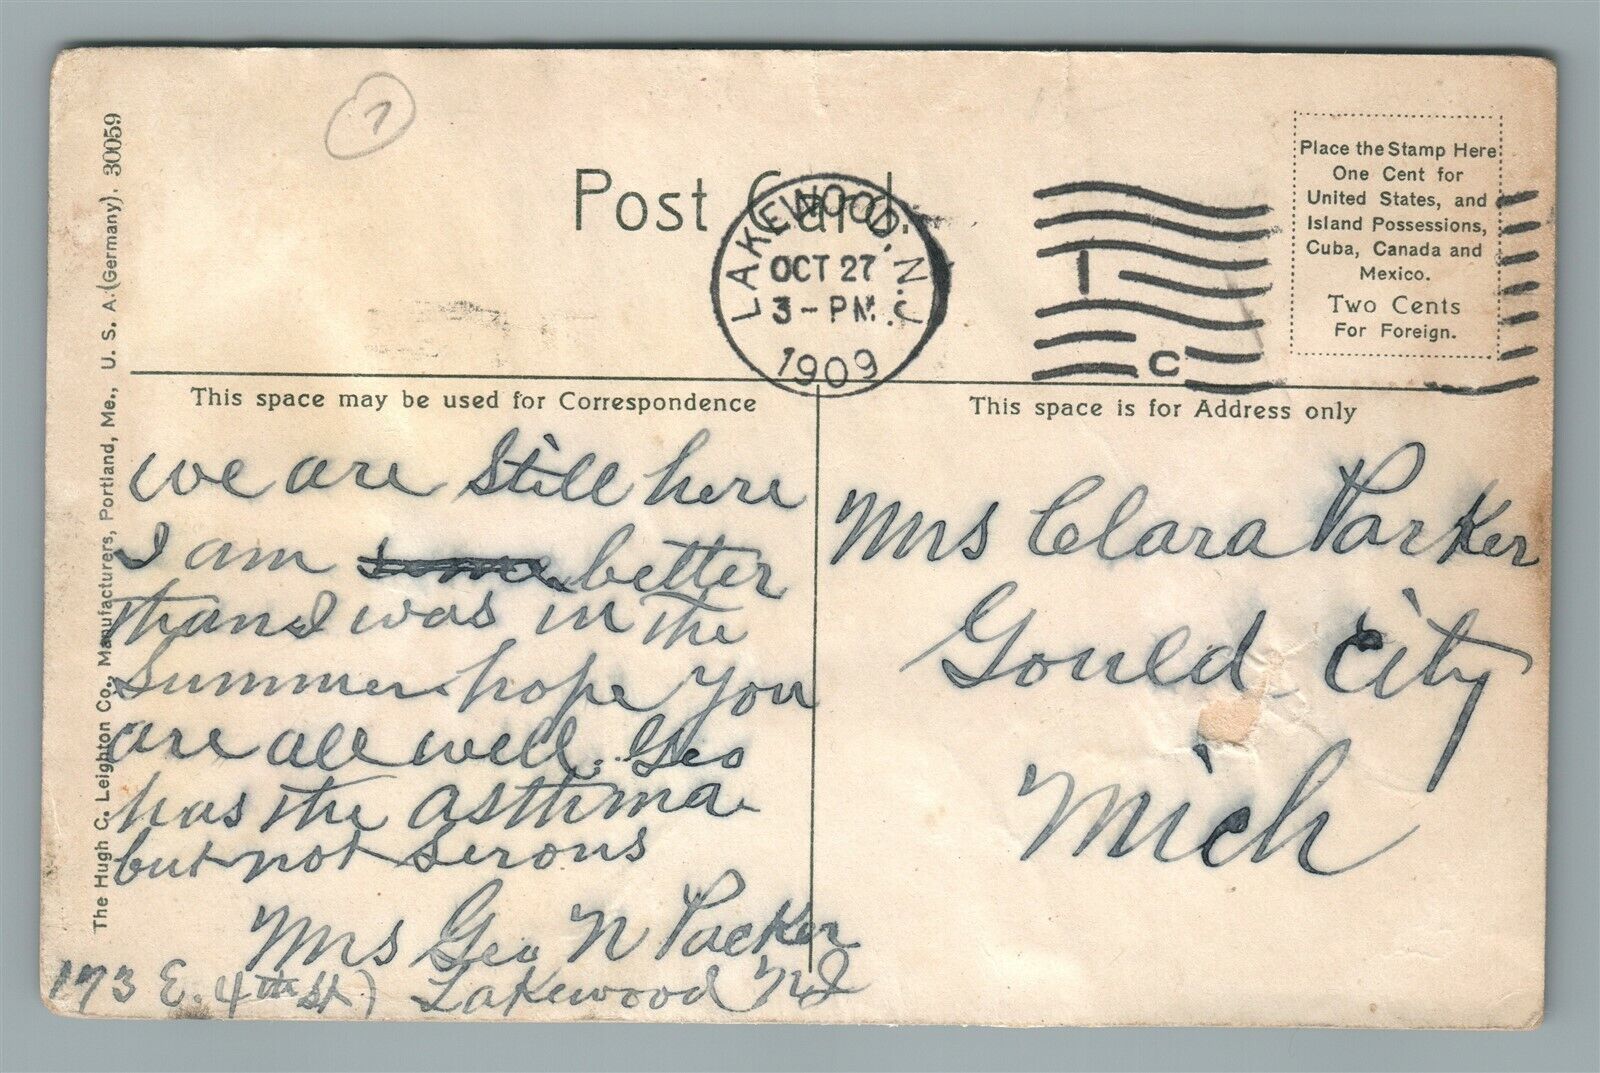 7
Post Card.
LAKEWOOD, N.J.
OCT 27
3-PM
1909
1
C
Place the Stamp Here
One Cent for
United States, and
Island Possessions,
Cuba, Canada and
Mexico.
Two Cents
For Foreign.
The Hugh C. Leighton Co., Manufacturers, Portland, Me., U. S. A. (Germany). 30059
This space may be used for Correspondence
we are still here
I am better
than I was in the
Summer. hope you
are all well. Geo
has the asthma
but not serous
Mrs Geo N Packer
173 E. 4th St) Lakewood NJ
This space is for Address only
Mrs Clara Parker
Gould City
Mich